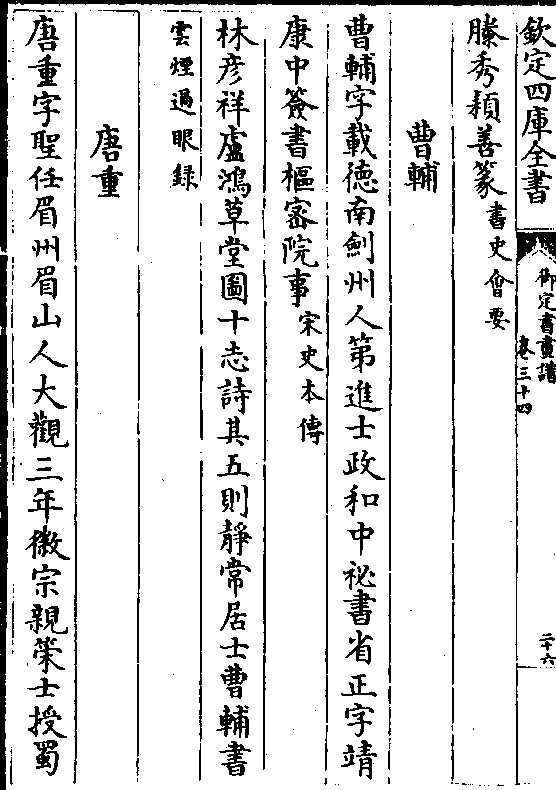 欽定四庫全書
御定書畫譜
卷三十四
二十六
滕秀頴善篆書史會要
曹輔
曹輔字載德南劍州人第進士政和中祕書省正字靖
康中簽書樞密院事宋史本傳
林彦祥盧鴻草堂圖十志詩其五則靜常居士曹輔書
雲煙過眼錄
唐重
唐重字聖任眉州眉山人大觀三年徽宗親策士授蜀